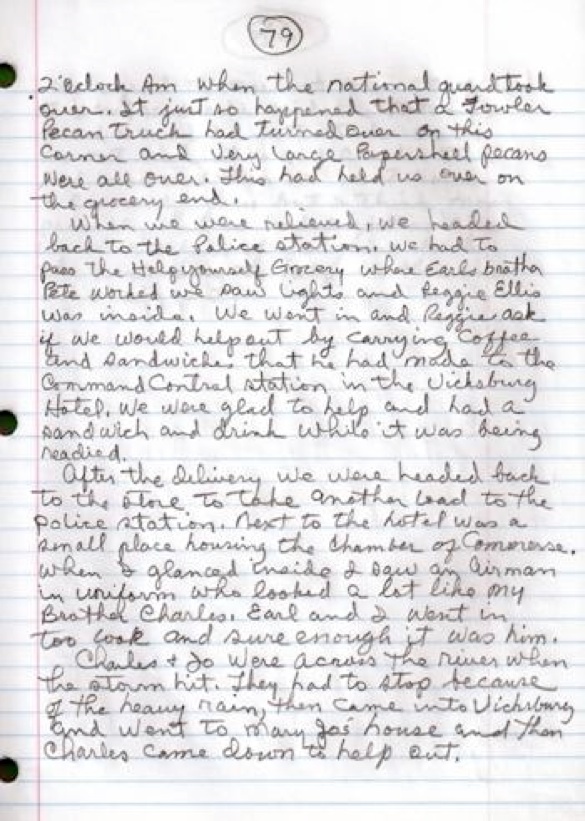 79
2'oclock Am when the national guard took
over. It just so happened that a Fowler
Pecan Truck had turned over on this
Corner and Very Large Papershell pecans
were all over. This had held us over on
the grocery end.
When we were relieved, we headed
back to the Police station. we had to
pass the Helpyourself Grocery where Earls brother
Pete worked we saw lights and Reggie Ellis
was inside. We went in and Reggie ask
if we would help out by carrying Coffee
and sandwiches that he had made to the
Command Control station in the Vicksburg
Hotel. We were glad to help and had a
sandwich and drink while it was being
readied.
After the delivery we were headed back
to the store to take another load to the
police station. Next to the hotel was a
small place housing the Chamber of Commerse.
when I glanced inside I saw an Airman
in uniform who looked a lot like my
Brother Charles. Earl and I went in
too look and sure enough it was him.
Charles & Jo were across the river when
the storm hit. They had to stop because
of the heavy rain, then came into Vicksburg
and went to mary Jos' house and then
Charles came down to help out.